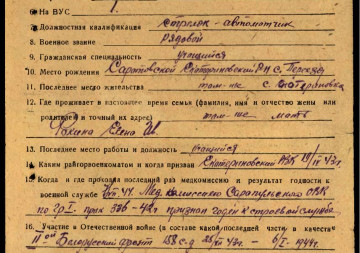 6. На ВУС
7. Должностная квалификация стрелок-автоматчик
8. Военное звание рядовой
9. Гражданская специальность учащийся
10. Место рождения Саратовской Екатериновский р-н с.
11. Последнее место жительства там-же с. Екатериновка
12. Где проживает в настоящее время семья (фамилия, имя и отчество жены или
родителей и точный их адрес) там-же мать
Елена И.
13. Последнее место работы и должность учащийся
14. Каким райгорвоенкоматом и когда призван Екатериновский РВК 43 г.
15. Когда и где проходил последний раз медкомиссию и результат годности к
военной службе 44. Мед. комиссию Сарапульского ОВК
по гр I. прик 336-42 г признан годен к строевой службе
16. Участие в Отечественной войне (в составе какой последней части в качестве
II ой Белорусский фронт 158 с.д. 43 г. - 6/I 1944 г.